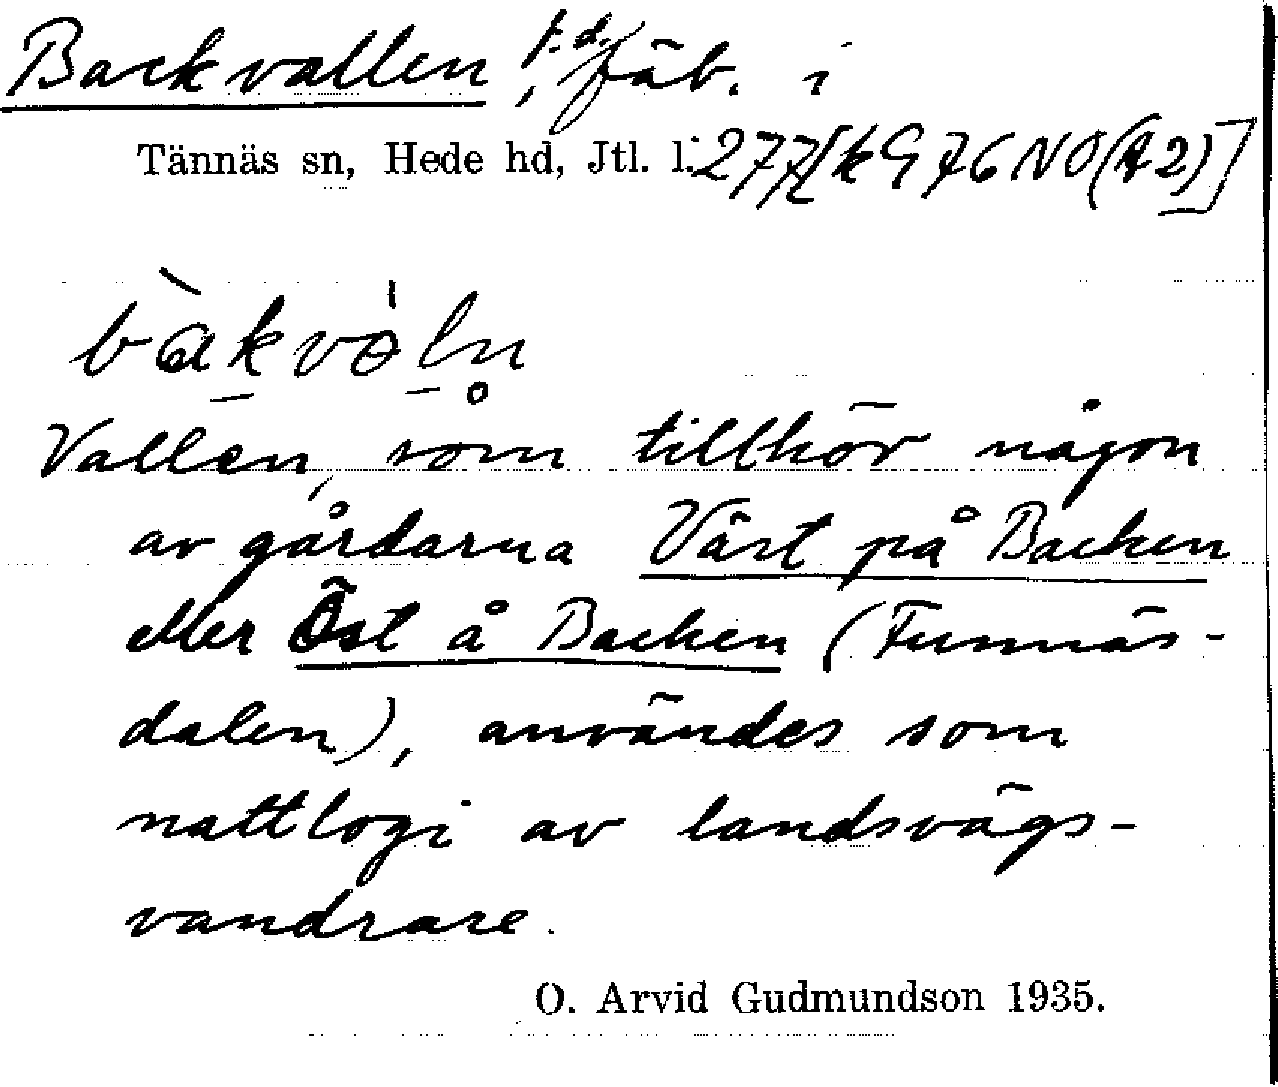 Backvallen, f.d. fäb. i
Tännäs sn, Hede hd, Jtl. l. 277 [kG 76 NO (A2)]
Vallen, som tillhör någon
av gårdarna Väst på Backen
eller Öst å Backen (Funnäs-
dalen), användes som
nattlogi av landsvägs-
vandrare.
O. Arvid Gudmundson 1935.